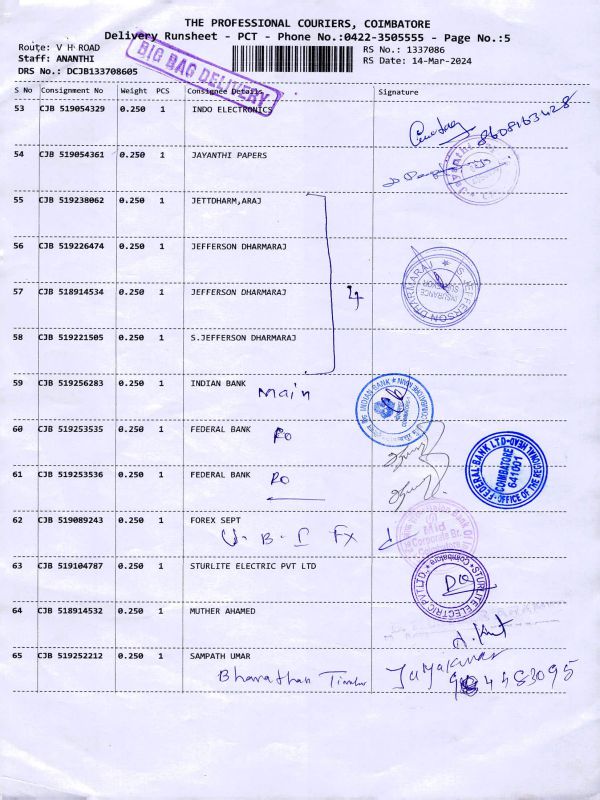 THE PROFESSIONAL COURIERS, COIMBATORE
Delivery Runsheet - PCT - Phone No.:0422-3505555 - Page No.:5
Route: V H ROAD
RS No.: 1337086
Staff: ANANTHI
RS Date: 14-Mar-2024
DRS No.: DCJB133708605
BIG BAG DELIVERY
S No Consignment No Weight PCS Consignee Details Signature
53 CJB 519054329 0.250 1 INDO ELECTRONICS
8608163428
54 CJB 519054361 0.250 1 JAYANTHI PAPERS
55 CJB 519238062 0.250 1 JETTDHARM,ARAJ
56 CJB 519226474 0.250 1 JEFFERSON DHARMARAJ
S. JEFFERSON DHARMARAJ
INSURANCE
57 CJB 518914534 0.250 1 JEFFERSON DHARMARAJ
4
58 CJB 519221505 0.250 1 S.JEFFERSON DHARMARAJ
59 CJB 519256283 0.250 1 INDIAN BANK
Main
INDIAN BANK
60 CJB 519253535 0.250 1 FEDERAL BANK
RO
FEDERAL BANK LTD
COIMBATORE
641001
61 CJB 519253536 0.250 1 FEDERAL BANK
RO
62 CJB 519089243 0.250 1 FOREX SEPT
U.B.I FX
Mid
Corporate Br.
63 CJB 519104787 0.250 1 STURLITE ELECTRIC PVT LTD
STURLITE ELECTRIC PVT LTD.
Coimbatore
64 CJB 518914532 0.250 1 MUTHER AHAMED
65 CJB 519252212 0.250 1 SAMPATH UMAR
Bharathan
Jayakumar